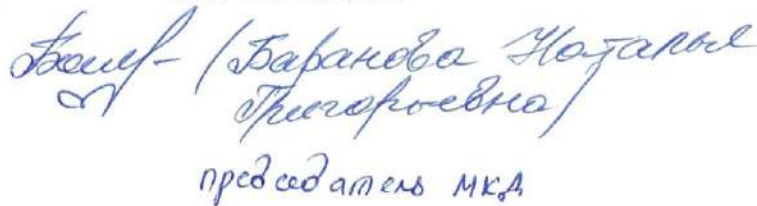 (Баранова Наталья
Григорьевна)
председатель МКД